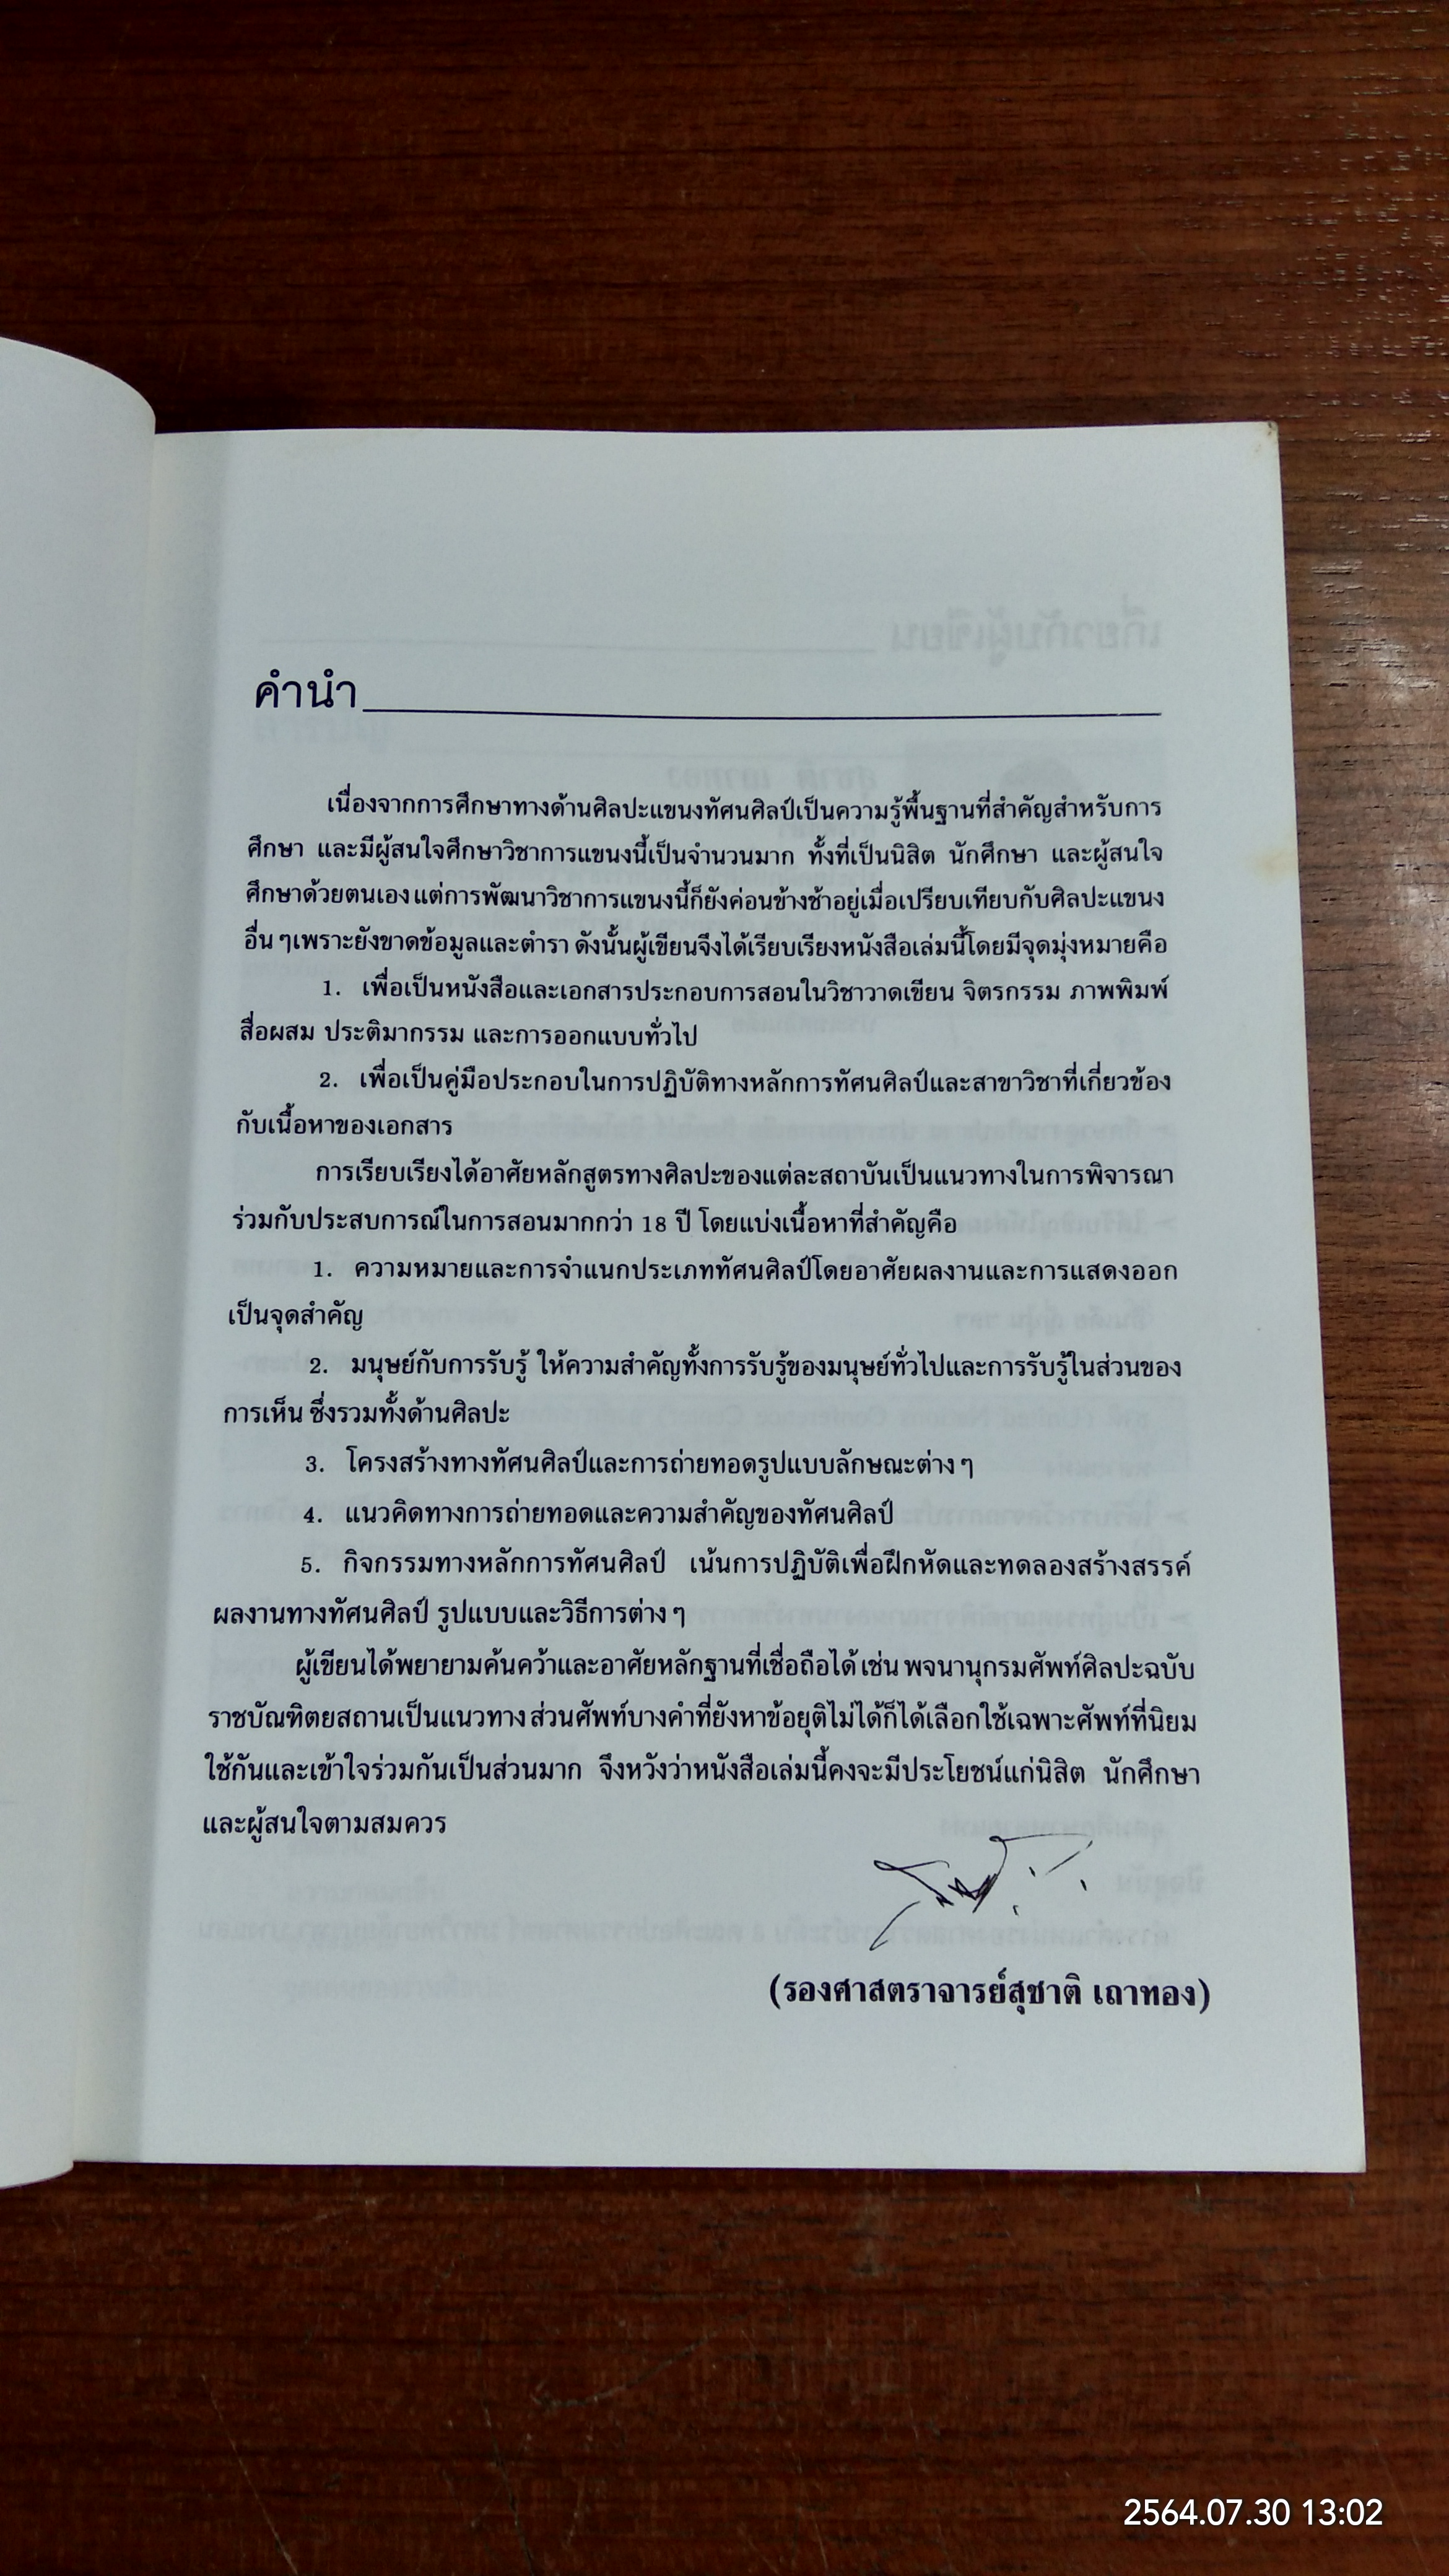 คำนำ
เนื่องจากการศึกษาทางด้านศิลปะแขนงทัศนศิลป์เป็นความรู้พื้นฐานที่สำคัญสำหรับการ
ศึกษา และมีผู้สนใจศึกษาวิชาการแขนงนี้เป็นจำนวนมาก ทั้งที่เป็นนิสิต นักศึกษา และผู้สนใจ
ศึกษาด้วยตนเอง แต่การพัฒนาวิชาการแขนงนี้ก็ยังค่อนข้างช้าอยู่เมื่อเปรียบเทียบกับศิลปะแขนง
อื่น ๆเพราะยังขาดข้อมูลและตำรา ดังนั้นผู้เขียนจึงได้เรียบเรียงหนังสือเล่มนี้โดยมีจุดมุ่งหมายคือ
1. เพื่อเป็นหนังสือและเอกสารประกอบการสอนในวิชาวาดเขียน จิตรกรรม ภาพพิมพ์
สื่อผสม ประติมากรรม และการออกแบบทั่วไป
2. เพื่อเป็นคู่มือประกอบในการปฏิบัติทางหลักการทัศนศิลป์และสาขาวิชาที่เกี่ยวข้อง
กับเนื้อหาของเอกสาร
การเรียบเรียงได้อาศัยหลักสูตรทางศิลปะของแต่ละสถาบันเป็นแนวทางในการพิจารณา
ร่วมกับประสบการณ์ในการสอนมากกว่า 18 ปี โดยแบ่งเนื้อหาที่สำคัญคือ
1. ความหมายและการจำแนกประเภททัศนศิลป์โดยอาศัยผลงานและการแสดงออก
เป็นจุดสำคัญ
2. มนุษย์กับการรับรู้ ให้ความสำคัญทั้งการรับรู้ของมนุษย์ทั่วไปและการรับรู้ในส่วนของ
การเห็น ซึ่งรวมทั้งด้านศิลปะ
3. โครงสร้างทางทัศนศิลป์และการถ่ายทอดรูปแบบลักษณะต่าง ๆ
4. แนวคิดทางการถ่ายทอดและความสำคัญของทัศนศิลป์
5. กิจกรรมทางหลักการทัศนศิลป์ เน้นการปฏิบัติเพื่อฝึกหัดและทดลองสร้างสรรค์
ผลงานทางทัศนศิลป์ รูปแบบและวิธีการต่าง ๆ
ผู้เขียนได้พยายามค้นคว้าและอาศัยหลักฐานที่เชื่อถือได้ เช่น พจนานุกรมศัพท์ศิลปะฉบับ
ราชบัณฑิตยสถานเป็นแนวทาง ส่วนศัพท์บางคำที่ยังหาข้อยุติไม่ได้ก็ได้เลือกใช้เฉพาะศัพท์ที่นิยม
ใช้กันและเข้าใจร่วมกันเป็นส่วนมาก จึงหวังว่าหนังสือเล่มนี้คงจะมีประโยชน์แก่นิสิต นักศึกษา
และผู้สนใจตามสมควร
(รองศาสตราจารย์สุชาติ เถาทอง)
2564.07.30 13:02